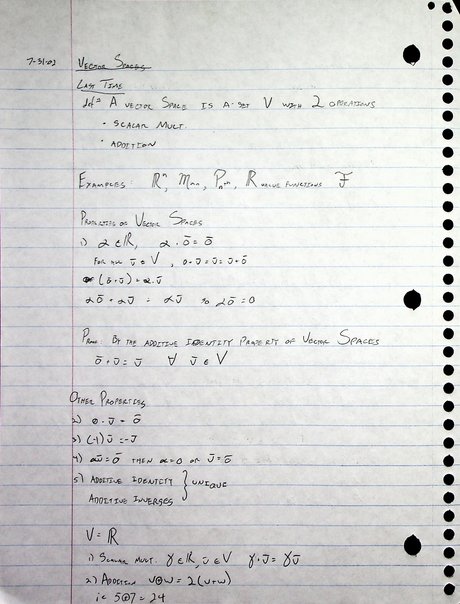 7-31-02 Vector Spaces
Last Time
def= A vector space is a set V with 2 operations
· Scalar Mult.
· Addition
Examples: ℝⁿ, Mₘₙ, Pₙ, ℝ value functions F
Properties of Vector Spaces
1) α ∈ ℝ, α · 0̄ = 0̄
For all v̄ ∈ V, 0̄ + v̄ = v̄ = v̄ + 0̄
α(0̄ + v̄) = α · v̄
α0̄ + αv̄ = αv̄ so α0̄ = 0
Proof: By the additive identity property of Vector Spaces
0̄ + v̄ = v̄ ∀ v̄ ∈ V
Other Properties
2) 0 · v̄ = 0̄
3) (-1)v̄ = -v̄
4) αv̄ = 0̄ then α = 0 or v̄ = 0̄
5) Additive Identity } unique
Additive Inverses
V = ℝ
1) Scalar Mult. γ ∈ ℝ, v̄ ∈ V γ · v̄ = γv̄
2) Addition v⊕w = 2(v+w)
ie 5⊕7 = 24